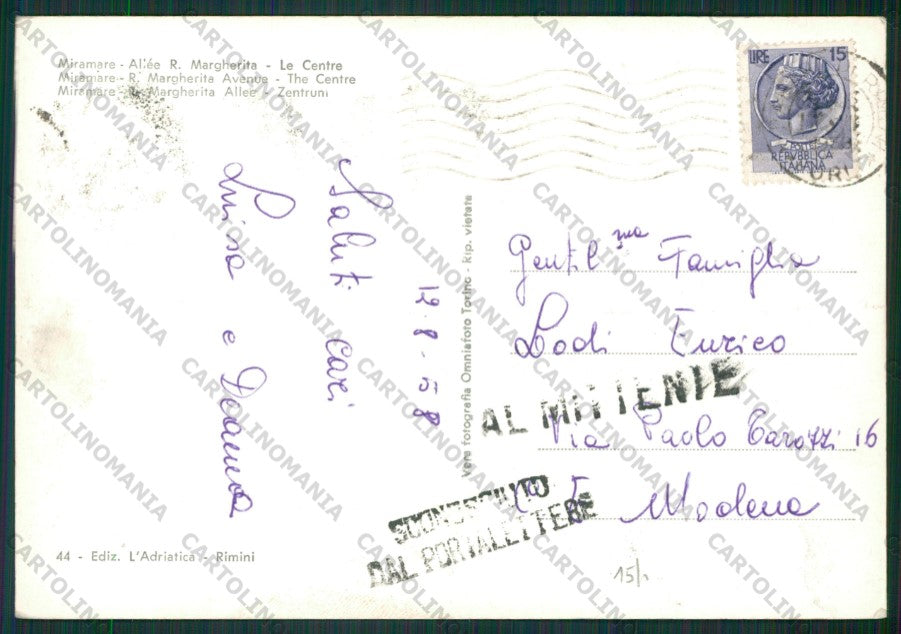 Miramare - Allée R. Margherita - Le Centre
Miramare - R. Margherita Avenue - The Centre
Miramare - R. Margherita Allee - Zentrum
LIRE 15
POSTE
REPVBBLICA
ITALIANA
Saluti cari
Luisa e Deanna
19-8-58
Vera fotografia Omniafoto Torino - Rip. vietata
Gentil.ma Famiglia
Lodi Enrico
AL MITTENTE
Via Paolo Tarozzi 16
SCONOSCIUTO
DAL PORTALETTERE
Modena
44 - Ediz. L'Adriatica - Rimini
15/
CARTOLINOMANIA